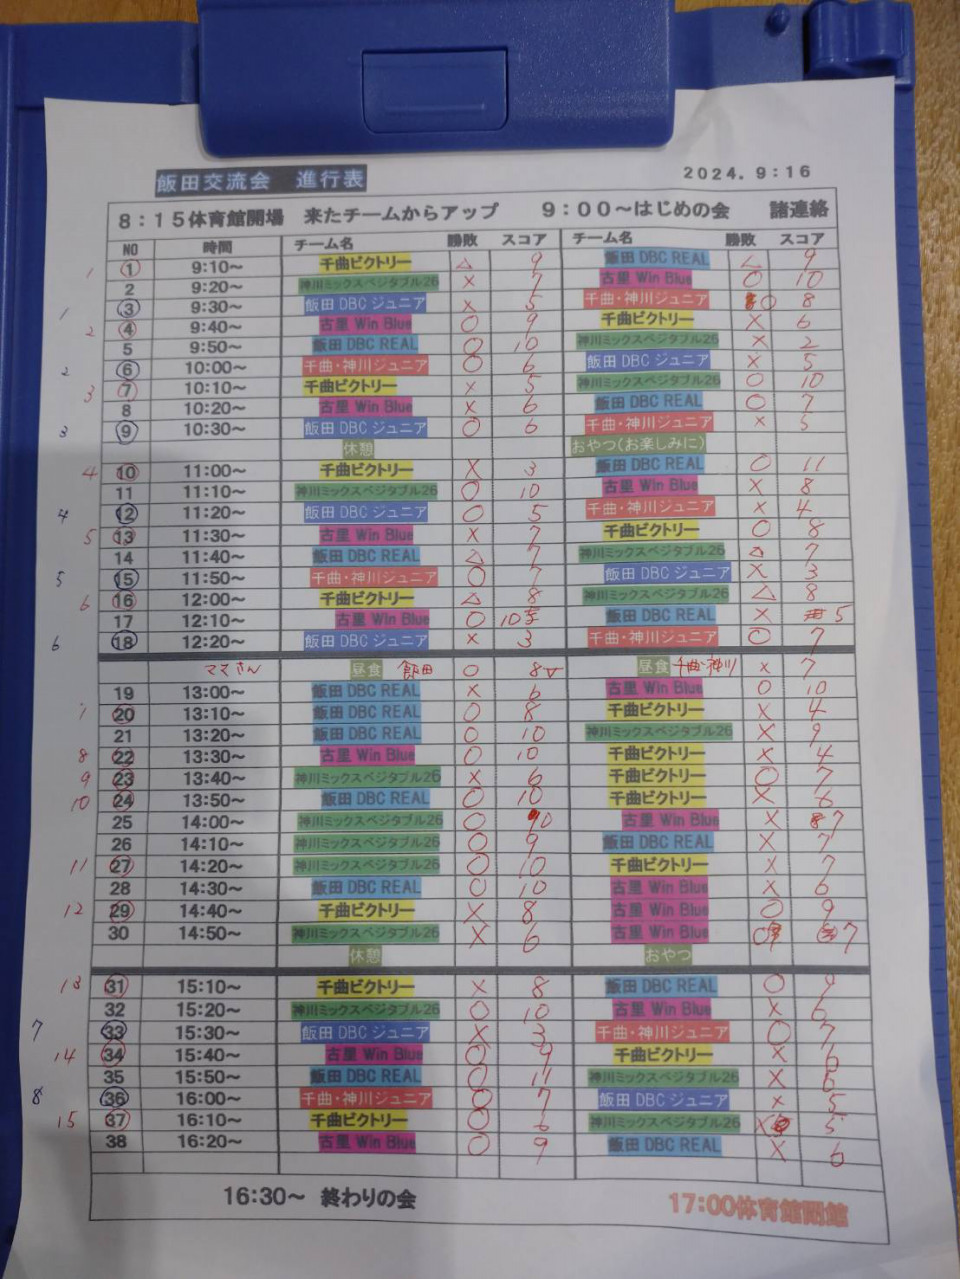 飯田交流会 進行表
2024.9:16
8:15体育館開場 来たチームからアップ 9:00～はじめの会 諸連絡
NO 時間 チーム名 勝敗 スコア チーム名 勝敗 スコア
1 ① 9:10～ 千曲ビクトリー △ 9 飯田 DBC REAL △ 9
2 9:20～ 神川ミックスベジタブル26 × 7 古里 Win Blue ○ 10
1 ③ 9:30～ 飯田 DBC ジュニア × 5 千曲・神川ジュニア ○ 8
2 ④ 9:40～ 古里 Win Blue ○ 9 千曲ビクトリー × 6
5 9:50～ 飯田 DBC REAL ○ 10 神川ミックスベジタブル26 × 2
2 ⑥ 10:00～ 千曲・神川ジュニア ○ 6 飯田 DBC ジュニア × 5
3 ⑦ 10:10～ 千曲ビクトリー × 5 神川ミックスベジタブル26 ○ 10
8 10:20～ 古里 Win Blue × 6 飯田 DBC REAL ○ 7
3 ⑨ 10:30～ 飯田 DBC ジュニア ○ 6 千曲・神川ジュニア × 5
休憩 おやつ(お楽しみに)
4 ⑩ 11:00～ 千曲ビクトリー × 3 飯田 DBC REAL ○ 11
11 11:10～ 神川ミックスベジタブル26 ○ 10 古里 Win Blue × 8
4 ⑫ 11:20～ 飯田 DBC ジュニア ○ 5 千曲・神川ジュニア × 4
5 ⑬ 11:30～ 古里 Win Blue × 7 千曲ビクトリー ○ 8
14 11:40～ 飯田 DBC REAL △ 7 神川ミックスベジタブル26 △ 7
5 ⑮ 11:50～ 千曲・神川ジュニア ○ 7 飯田 DBC ジュニア × 3
6 ⑯ 12:00～ 千曲ビクトリー △ 8 神川ミックスベジタブル26 △ 8
17 12:10～ 古里 Win Blue ○ 10 飯田 DBC REAL × 5
6 ⑱ 12:20～ 飯田 DBC ジュニア × 3 千曲・神川ジュニア ○ 7
ママさん 昼食 飯田 ○ 8 昼食 千曲・神川 × 7
19 13:00～ 飯田 DBC REAL × 6 古里 Win Blue ○ 10
7 ⑳ 13:10～ 飯田 DBC REAL ○ 8 千曲ビクトリー × 4
21 13:20～ 飯田 DBC REAL ○ 10 神川ミックスベジタブル26 × 9
8 ㉒ 13:30～ 古里 Win Blue ○ 10 千曲ビクトリー × 4
9 ㉓ 13:40～ 神川ミックスベジタブル26 × 6 千曲ビクトリー ○ 7
10 ㉔ 13:50～ 飯田 DBC REAL ○ 10 千曲ビクトリー × 6
25 14:00～ 神川ミックスベジタブル26 ○ 10 古里 Win Blue × 7
26 14:10～ 神川ミックスベジタブル26 ○ 9 飯田 DBC REAL × 7
11 ㉗ 14:20～ 神川ミックスベジタブル26 ○ 10 千曲ビクトリー × 7
28 14:30～ 飯田 DBC REAL ○ 10 古里 Win Blue × 6
12 ㉙ 14:40～ 千曲ビクトリー × 8 古里 Win Blue ○ 9
30 14:50～ 神川ミックスベジタブル26 × 6 古里 Win Blue ○ 7
休憩 おやつ
13 ㉛ 15:10～ 千曲ビクトリー × 8 飯田 DBC REAL ○ 9
32 15:20～ 神川ミックスベジタブル26 ○ 10 古里 Win Blue × 6
7 ㉝ 15:30～ 飯田 DBC ジュニア × 3 千曲・神川ジュニア ○ 7
14 ㉞ 15:40～ 古里 Win Blue ○ 9 千曲ビクトリー × 6
35 15:50～ 飯田 DBC REAL ○ 11 神川ミックスベジタブル26 × 6
8 ㊱ 16:00～ 千曲・神川ジュニア ○ 7 飯田 DBC ジュニア × 5
15 ㊲ 16:10～ 千曲ビクトリー ○ 6 神川ミックスベジタブル26 × 5
38 16:20～ 古里 Win Blue ○ 9 飯田 DBC REAL × 6
16:30～ 終わりの会 17:00体育館閉館